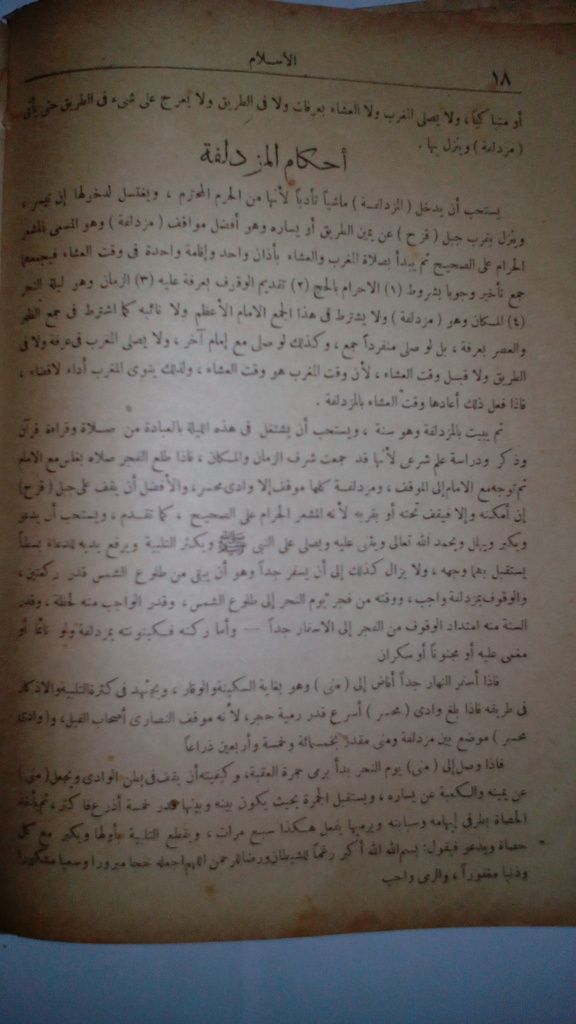 الاسلام
١٨
أو متباكياً، ولا يصلى المغرب ولا العشاء بعرفات ولا فى الطريق ولا يعرج على شىء فى الطريق حتى يأتى
( مزدلفة ) وينزل بها .
أحكام المزدلفة
يستحب أن يدخل ( المزدلفة ) ماشياً تأدباً لأنها من الحرم المحترم ، ويغتسل لدخولها إن تيسر ،
وينزل بقرب جبل ( قزح ) عن يمين الطريق أو يساره وهو أفضل مواقف ( مزدلفة ) وهو المسمى بالمشعر
الحرام على الصحيح ثم يبدأ بصلاة المغرب والعشاء بأذان واحد وإقامة واحدة فى وقت العشاء فيجمعهما
جمع تأخير وجوبا بشروط (١) الاحرام بالحج (٢) تقديم الوقوف بعرفة عليه (٣) الزمان وهو ليلة النحر
(٤) المكان وهو ( مزدلفة ) ولا يشترط فى هذا الجمع الامام الأعظم ولا نائبه كما اشترط فى جمع الظهر
والعصر بعرفة ، بل لو صلى منفرداً جمع ، وكذلك لو صلى مع إمام آخر ، ولا يصلى المغرب فى عرفة ولا فى
الطريق ولا قبل وقت العشاء ، لأن وقت المغرب هو وقت العشاء ، ولذلك ينوى المغرب أداء لا قضاء ،
فاذا فعل ذلك أعادها وقت العشاء بالمزدلفة .
ثم يبيت بالمزدلفة وهو سنة ، ويستحب أن يشتغل فى هذه الليلة بالعبادة من صلاة وقراءة قرآن
وذكر ودراسة علم شرعى لأنها قد جمعت شرف الزمان والمكان ، فاذا طلع الفجر صلاه بغلس مع الامام
ثم توجه مع الامام إلى الموقف ، ومزدلفة كلها موقف إلا وادى محسر، والأفضل أن يقف على جبل (قزح)
إن أمكنه وإلا فيقف تحته أو بقربه لأنه المشعر الحرام على الصحيح ، كما تقدم ، ويستحب أن يدعو
ويكبر ويهلل ويحمد الله تعالى ويثنى عليه ويصلى على النبى ﷺ ويكثر التلبية ويرفع يديه للدعاء بسطاً
يستقبل بهما وجهه ، ولا يزال كذلك إلى أن يسفر جداً وهو أن يبقى من طلوع الشمس قدر ركعتين ،
والوقوف بمزدلفة واجب، ووقته من فجر يوم النحر إلى طلوع الشمس ، وقدر الواجب منه لحظة ، وقدر
السنة منه امتداد الوقوف من الفجر إلى الاسفار جداً — وأما ركنه فكينونته بمزدلفة ولو نائماً أو
مغمى عليه أو مجنوناً أو سكران
فاذا أسفر النهار جداً أفاض إلى ( منى ) وهو بغاية السكينة والوقار ، ويجتهد فى كثرة التلبية والاذكار
فى طريقه فاذا بلغ وادى ( محسر ) أسرع قدر رمية حجر، لأنه موقف النصارى أصحاب الفيل، و(وادى
محسر ) موضع بين مزدلفة ومنى مقدر بخمسمائة وخمسة وأربعين ذراعاً
فاذا وصل إلى ( منى) يوم النحر بدأ برمى جمرة العقبة، وكيفيته أن يقف فى بطن الوادى ويجعل (منى)
عن يمينه والكعبة عن يساره ، ويستقبل الجمرة بحيث يكون بينه وبينها قدر خمسة أذرع فأكثر، ثم يأخذ
الحصاة بطرفى إبهامه وسبابته ويرميها يفعل هكذا سبع مرات ، ويقطع التلبية بأولها ويكبر مع كل
حصاة ويدعو فيقول: بسم الله الله أكبر رغماً للشيطان ورضا للرحمن اللهم اجعله حجا مبرورا وسعيا مشكورا
وذنبا مغفوراً ، والرمى واجب